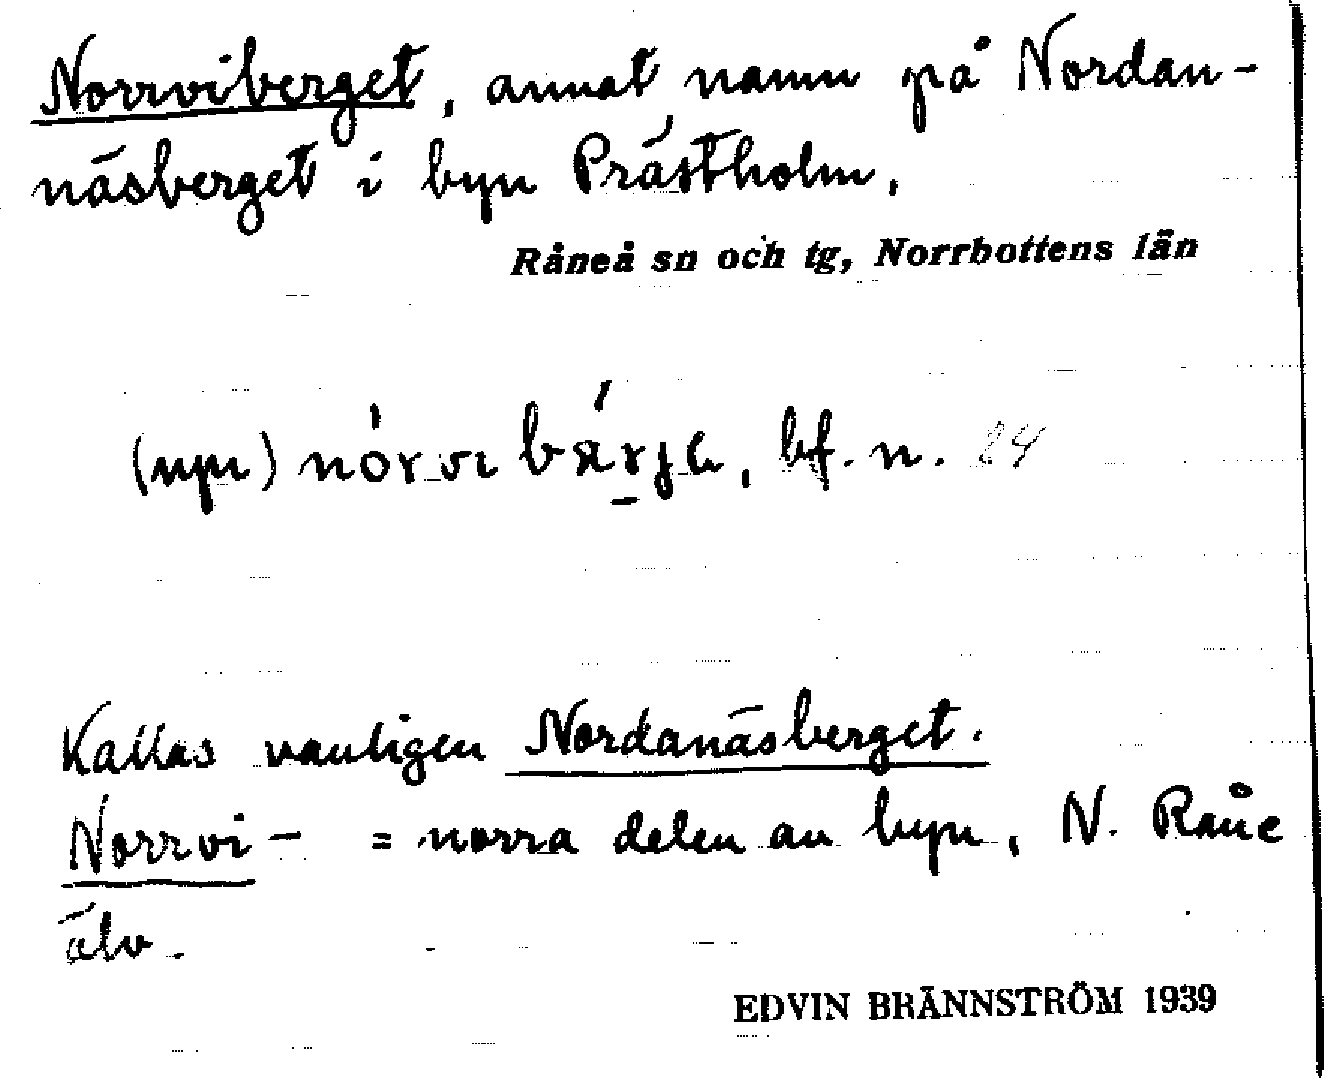 Norrviberget, annat namn på Nordan-
näsberget i byn Prästholm.
Råneå sn och tg, Norrbottens län
(npn) bf. n. 24
Kallas vanligen Nordanäsberget.
Norrvi- = norra delen av byn, N. Råne
älv.
EDVIN BRÄNNSTRÖM 1939